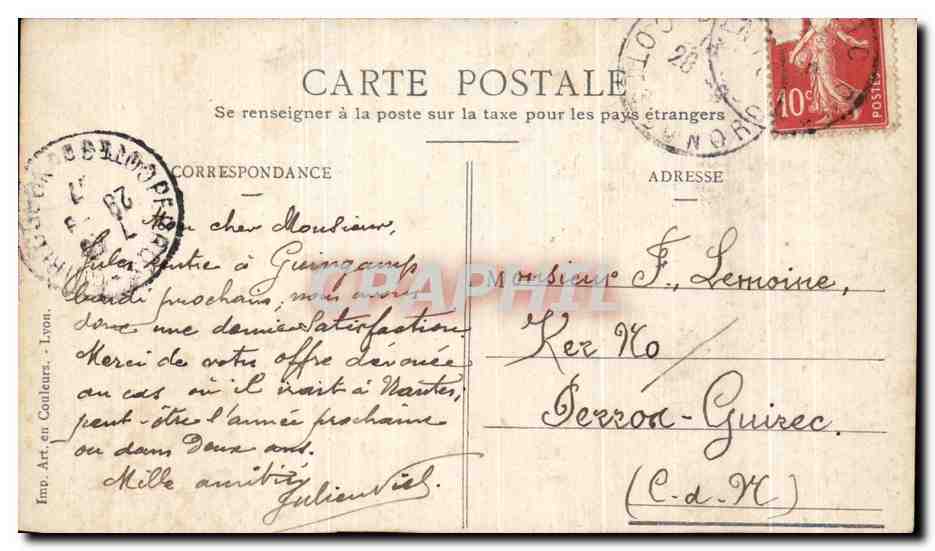 CARTE POSTALE
Se renseigner à la poste sur la taxe pour les pays étrangers
CORRESPONDANCE
ADRESSE
Mon cher Monsieur,
Jules entre à Guingamp
lundi prochain, nous avons
donc une demie Satisfaction.
Merci de votre offre dévouée
au cas où il irait à Nantes,
peut-être l'année prochaine
ou dans Deux ans.
Mille amitiés
Julien Viel.
Monsieur F. Lemoine,
Ker No
Perros-Guirec.
(C-d-N)
Imp. Art. en Couleurs. - Lyon.
10c
POSTES
CRAPHIL